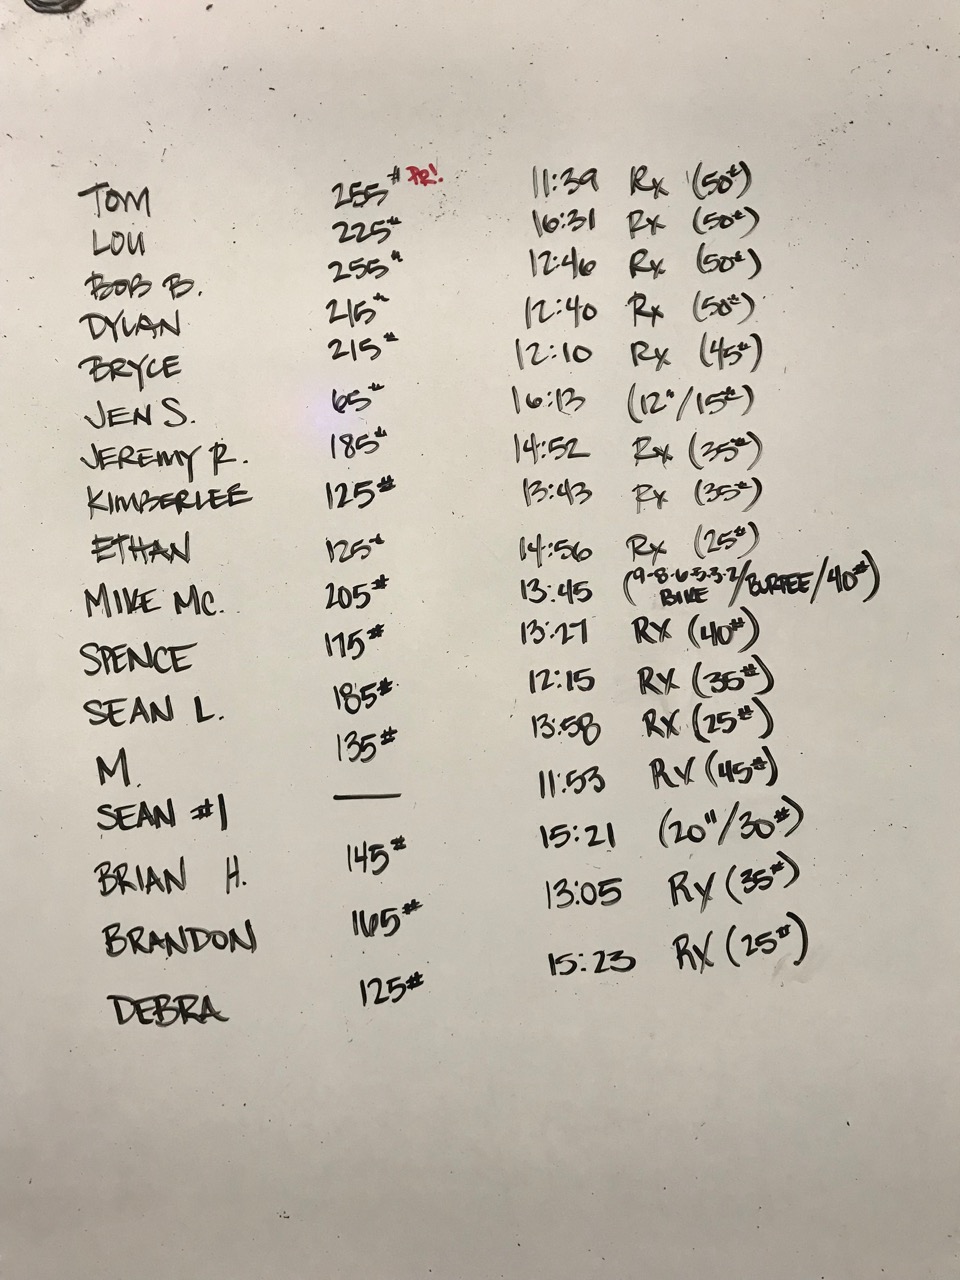 TOM 255# PR! 11:39 Rx (50#)
LOU 225# 16:31 Rx (50#)
BOB B. 255# 12:46 Rx (50#)
DYLAN 215# 12:40 Rx (50#)
BRYCE 215# 12:10 Rx (45#)
JEN S. 65# 16:13 (12"/15#)
JEREMY R. 185# 14:52 Rx (35#)
KIMBERLEE 125# 13:43 Rx (35#)
ETHAN 125# 14:56 Rx (25#)
MIKE MC. 205# 13:45 (9-8-6-5-3-2 BIKE/BURPEE/40#)
SPENCE 175# 13:27 RX (40#)
SEAN L. 185# 12:15 RX (35#)
M. 135# 13:58 RX (25#)
SEAN #1 — 11:53 RX (45#)
BRIAN H. 145# 15:21 (20"/30#)
BRANDON 165# 13:05 RX (35#)
DEBRA 125# 15:23 RX (25#)